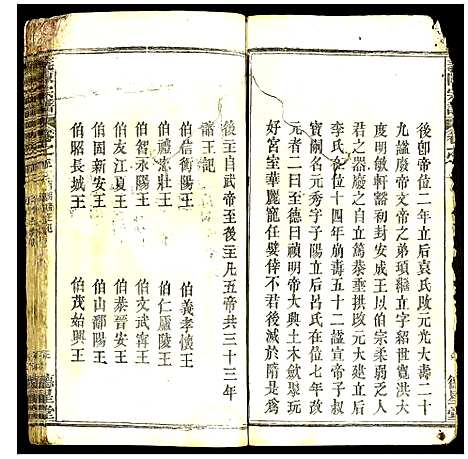 後卽帝位二年立后袁氏改元光大壽二十
九諡廢帝文帝之弟頊繼立考宣帝諱頊紹世寬
度明敏軒豁初封安成王以伯宗柔弱乏人
君之器廢之自立篤恭垂拱改元大建立后
李氏在位十四年崩壽五十二諡宣帝子叔
寶嗣名元秀字子陽立后呂氏在位七年改
元者二曰至德曰禎明帝大興土木歛聚玩
好宮室華麗寵任嬖倖不君後滅於隋
爲
後主自武帝至後主凡五帝共三十三年
諸王記
伯信衡陽王
伯禮武壯王
伯智永陽王
伯友江夏王
伯固新安王
伯昭長城王
伯義孝懷王
伯仁廬陵王
伯文武寗王
伯恭晉安王
伯山鄱陽王
伯茂始興王
德星堂
德星堂